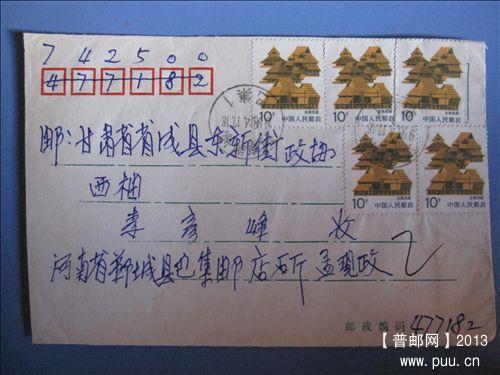 742500
477182
10分 中国人民邮政
10分 中国人民邮政
10分 中国人民邮政
10分 中国人民邮政
10分 中国人民邮政
邮:甘肃省 成县东新街政协
西
李彦峰 收
河南省郸城县 集邮店 孟现政
邮政编码 477182
【普邮网】2013
www.puu.cn